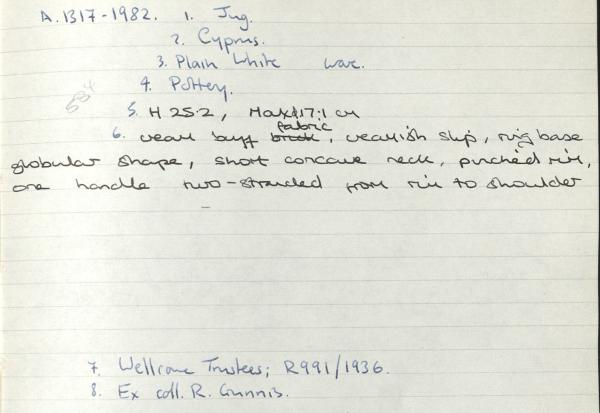 A.1317-1982. 1. Jug.
2. Cyprus.
3. Plain White ware.
4. Pottery.
584
5. H 25.2, Max d 17.1 cm
6. cream buff fabric, creamish slip, ring base
globular shape, short concave neck, pinched rim,
one handle two-stranded from rim to shoulder
7. Wellcome Trustees; R991/1936.
8. Ex coll. R. Gunnis.